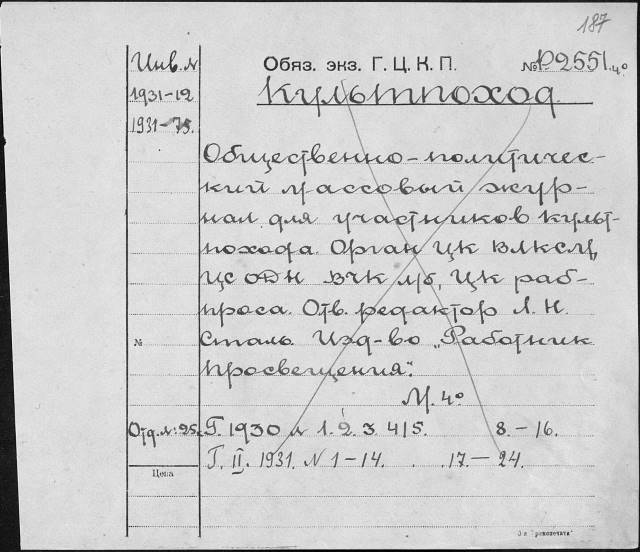 187
Инв. №
1931-12
1931-75.
Обяз. экз. Г. Ц. К. П.
№ Р2551. 4°
Культпоход.
Общественно-политичес-
кий массовый жур-
нал для участников культ-
похода. Орган ЦК ВЛКСМ,
ЦС ОДН ВЧК л/б, ЦК раб-
проса. Отв. редактор Л. Н.
Сталь Изд-во „Работник
Просвещения".
М. 4°
№
Отд. №: 25. Г. 1930 № 1. 2. 3. 4/5. 8. – 16.
Г. II. 1931. N 1 – 14. 17. – 24.
Цена